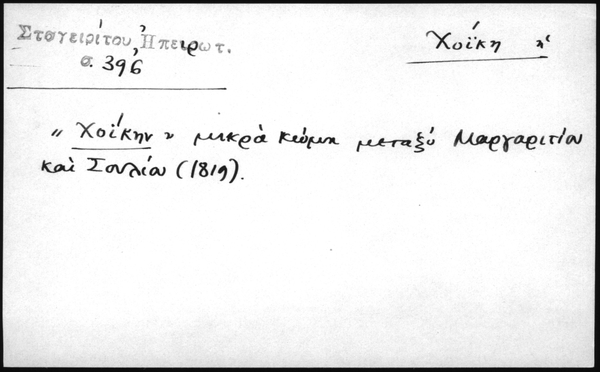 Σταγειρίτου, Ἠπειρωτ.
σ. 396
Χοΐκη ἡ
„ Χοΐκην " μικρὰ κώμη μεταξύ Μαργαριτίου
καὶ Σουλίου (1819).